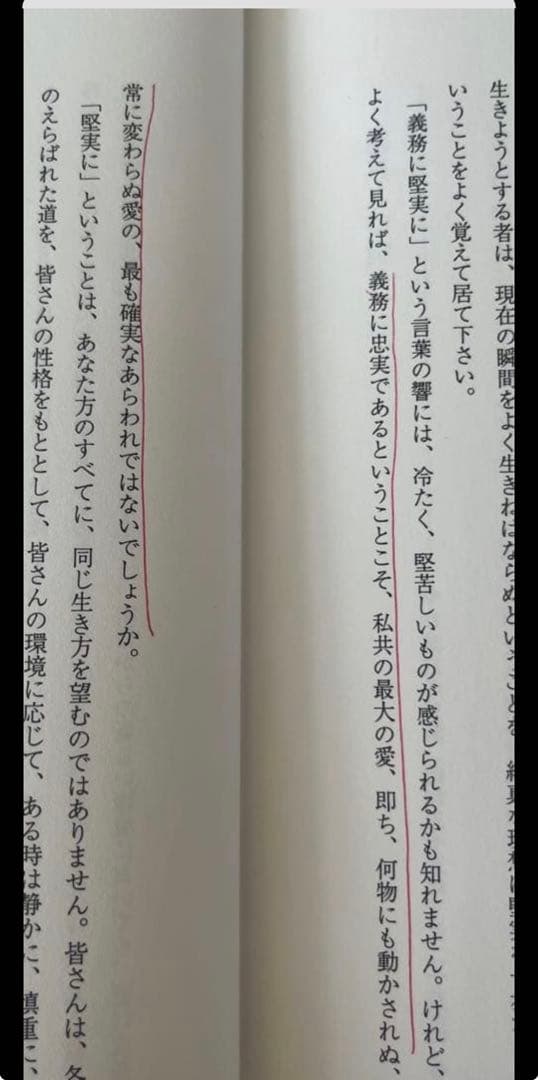 生きようとする者は、現在の瞬間をよく生きねばならぬということを、
いうことをよく覚えて居て下さい。
「義務に堅実に」という言葉の響には、冷たく、堅苦しいものが感じられるかも知れません。けれど、
よく考えて見れば、義務に忠実であるということこそ、私共の最大の愛、即ち、何物にも動かされぬ、
常に変わらぬ愛の、最も確実なあらわれではないでしょうか。
「堅実に」ということは、あなた方のすべてに、同じ生き方を望むのではありません。皆さんは、
のえらばれた道を、皆さんの性格をもととして、皆さんの環境に応じて、ある時は静かに、慎重に、